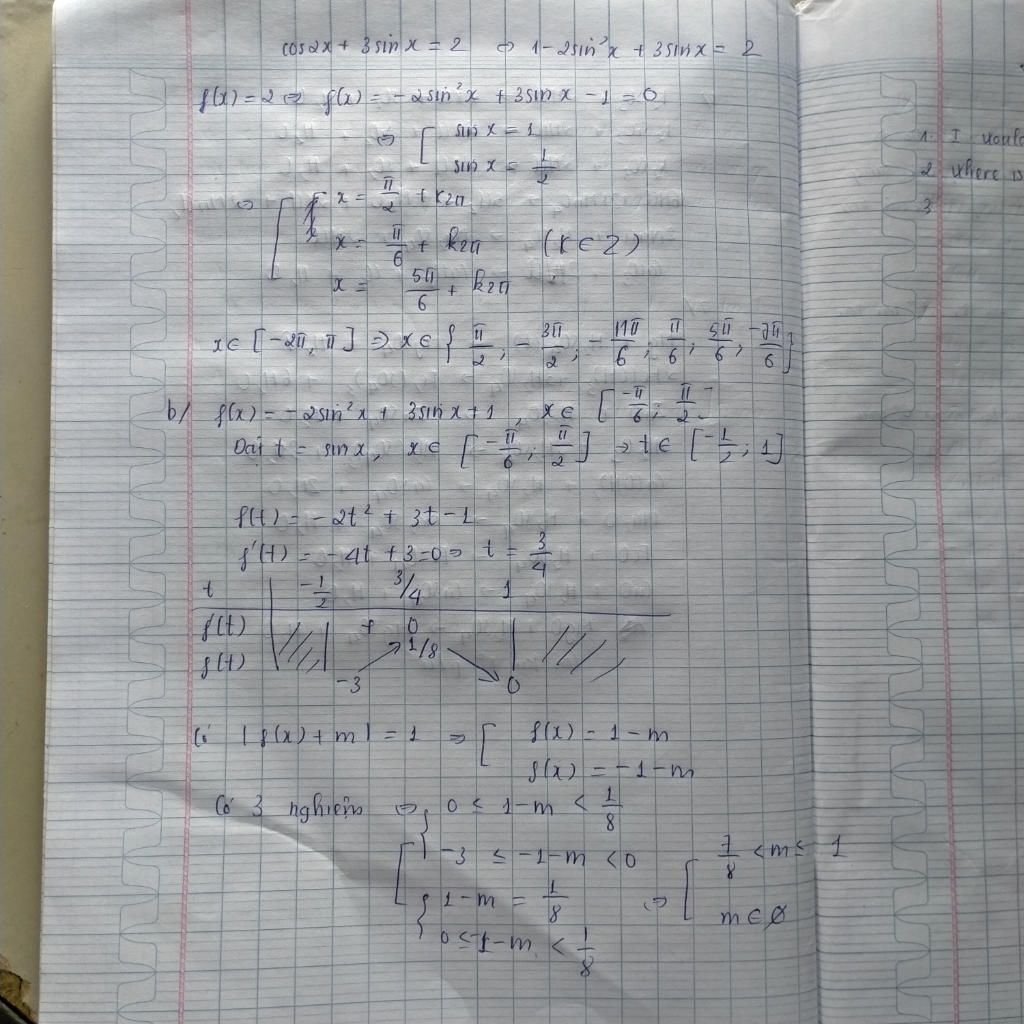 cos2x + 3sinx = 2 ⇔ 1 - 2sin²x + 3sinx = 2
f(x) = 2 ⇔ f(x) = -2sin²x + 3sinx - 1 = 0
⇔ [ sin x = 1
sin x = 1/2
⇔ [ x = π/2 + k2π
x = π/6 + k2π (k ∈ Z)
x = 5π/6 + k2π
x ∈ [-2π, π] ⇒ x ∈ { π/2, -3π/2, -11π/6, π/6, 5π/6, -7π/6 }
b/ f(x) = -2sin²x + 3sinx + 1, x ∈ [-π/6; π/2]
Đặt t = sinx, x ∈ [-π/6; π/2] ⇒ t ∈ [-1/2; 1]
f(t) = -2t² + 3t - 1
f'(t) = -4t + 3 = 0 ⇒ t = 3/4
t -1/2 3/4 1
f'(t) + 0
f(t) -3 1/8 0
Có |f(x) + m| = 1 ⇒ [ f(x) = 1 - m
f(x) = -1 - m
Có 3 nghiệm ⇔ [ { 0 ≤ 1 - m < 1/8
-3 ≤ -1 - m < 0
{ 1 - m = 1/8
0 ≤ -1 - m < 1/8
⇔ [ 7/8 < m ≤ 1
m ∈ ∅
1. I would
2 where is
3